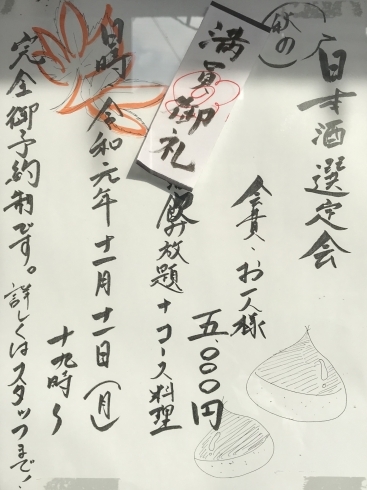 秋の
日本酒選定会
会費、お一人様
五.000円
飲み放題+コース料理
満員御礼
日時 令和元年十一月十一日(月)
十九時〜
完全御予約制です。詳しくはスタッフまで!